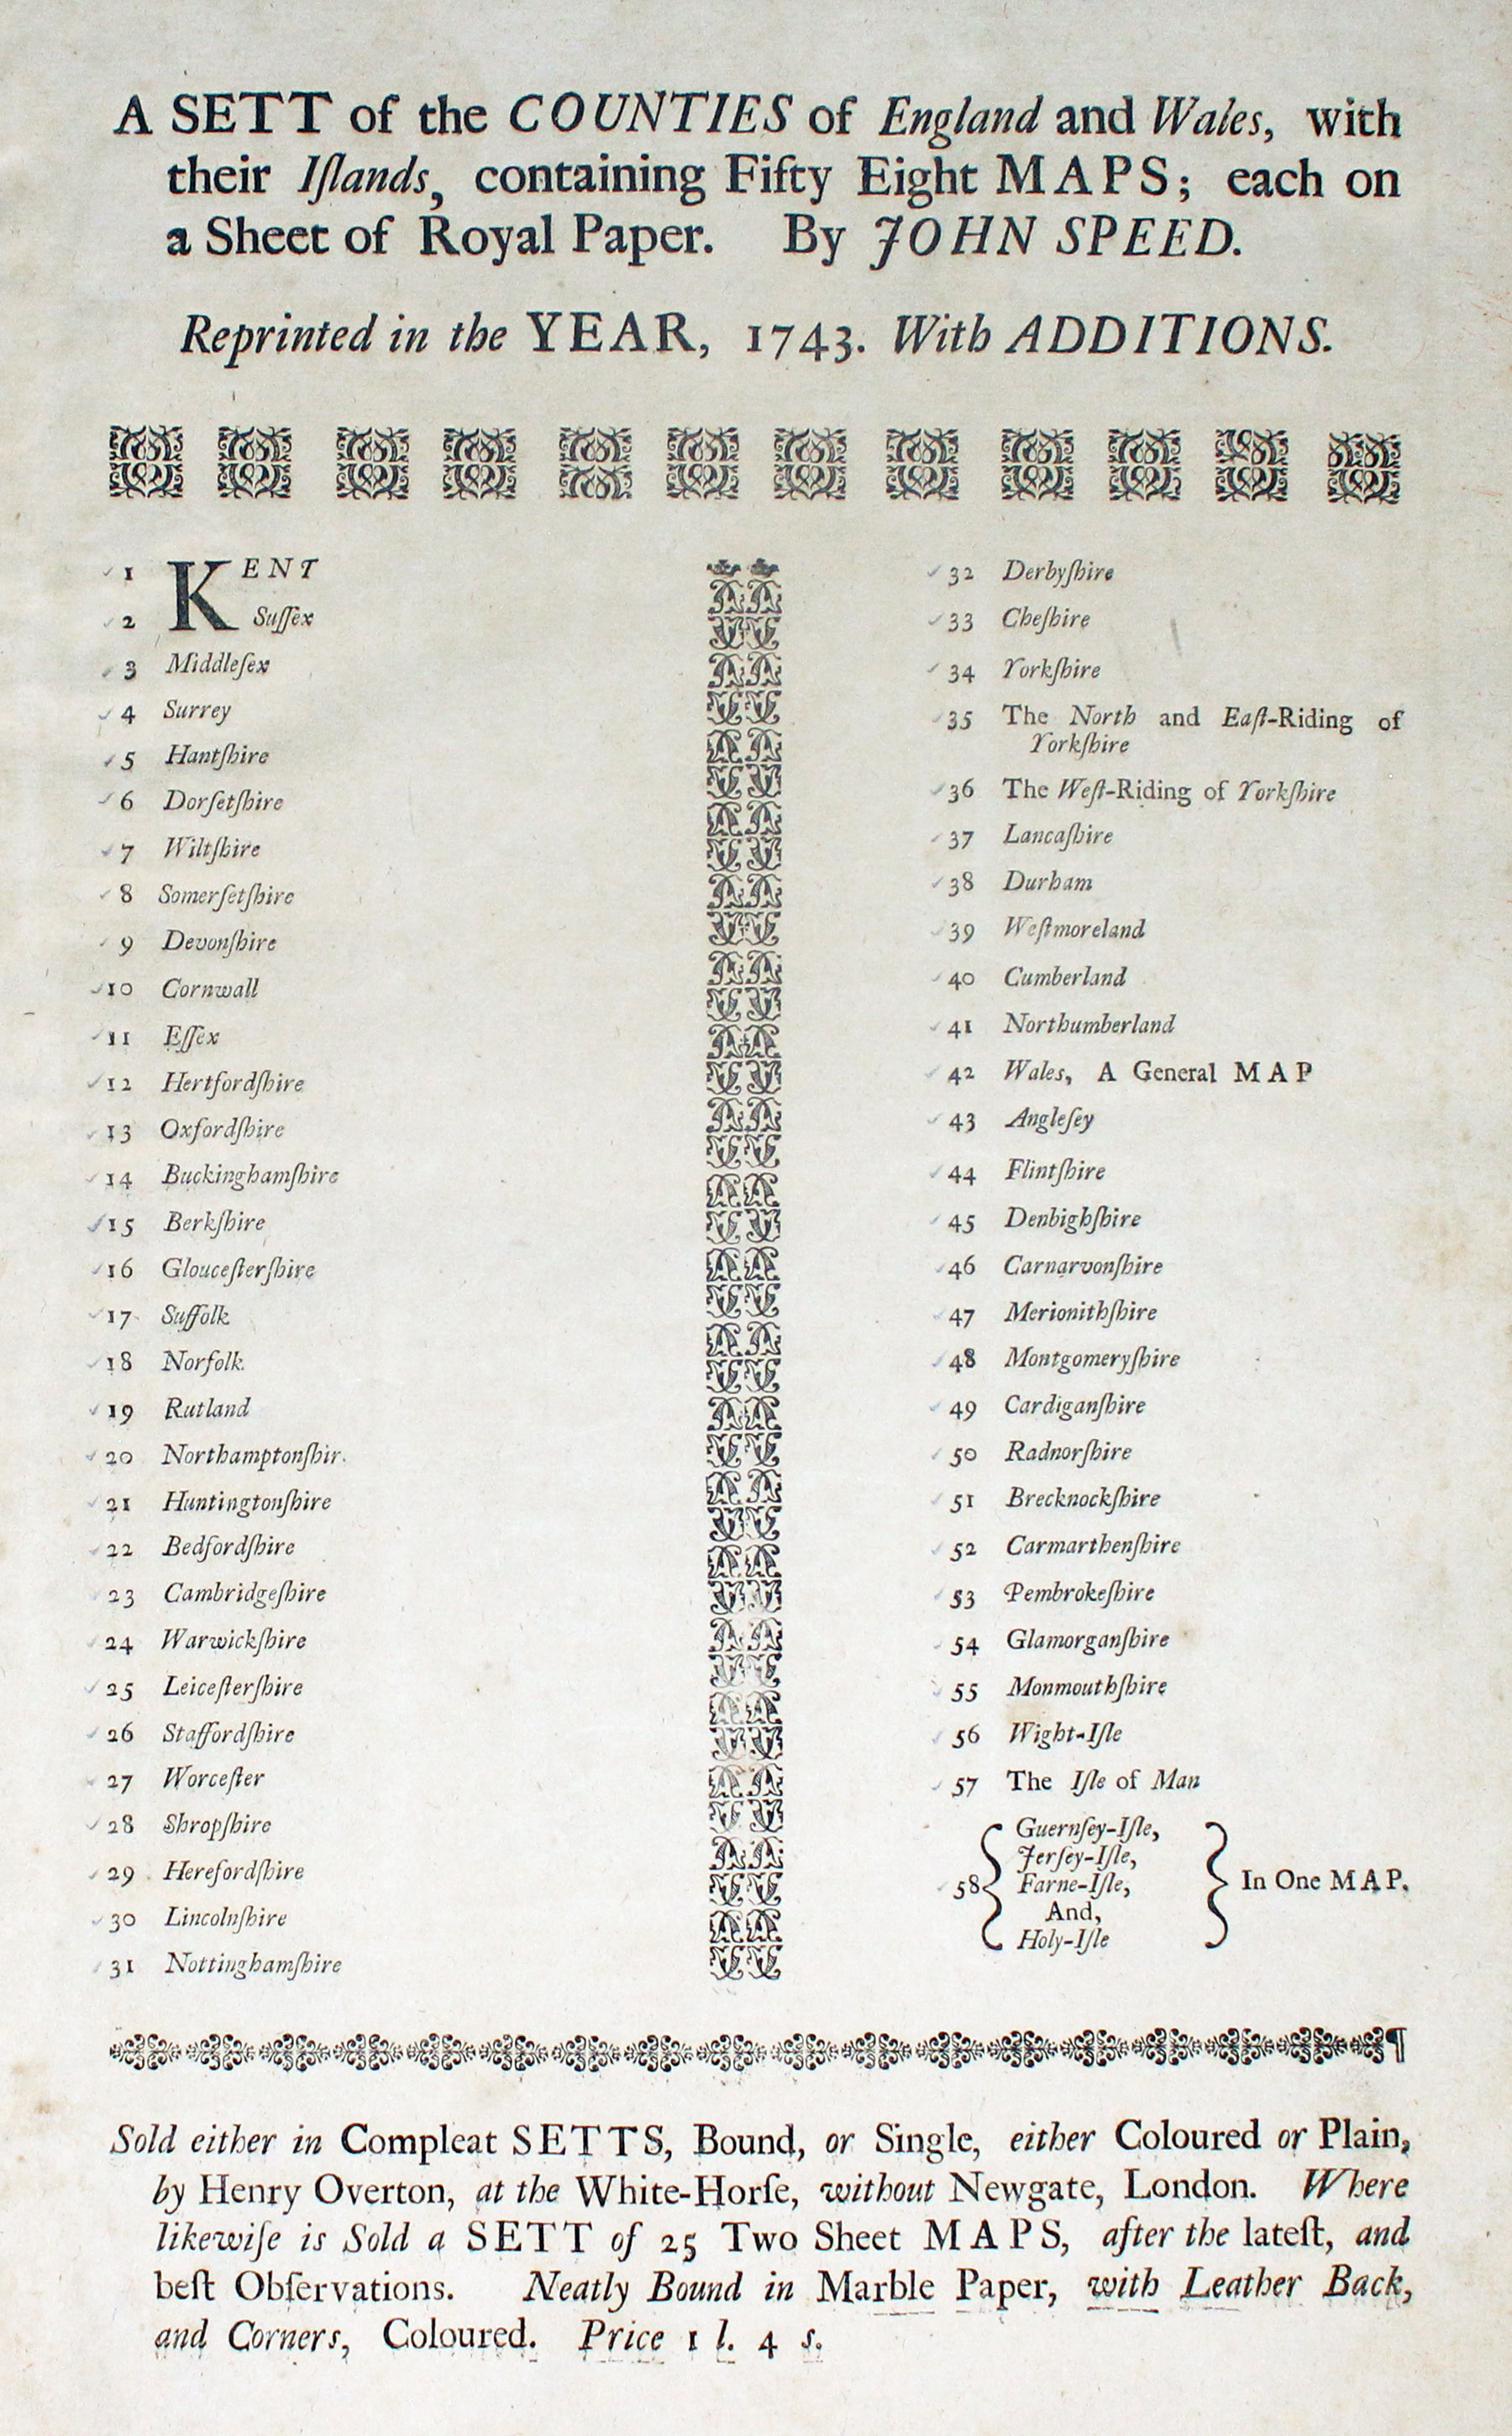 A SETT of the COUNTIES of England and Wales, with
their Iſlands, containing Fifty Eight MAPS; each on
a Sheet of Royal Paper. By JOHN SPEED.
Reprinted in the YEAR, 1743. With ADDITIONS.
1 KENT
2 Suſſex
3 Middleſex
4 Surrey
5 Hantſhire
6 Dorſetſhire
7 Wiltſhire
8 Somerſetſhire
9 Devonſhire
10 Cornwall
11 Eſſex
12 Hertfordſhire
13 Oxfordſhire
14 Buckinghamſhire
15 Berkſhire
16 Glouceſterſhire
17 Suffolk
18 Norfolk
19 Rutland
20 Northamptonſhir.
21 Huntingtonſhire
22 Bedfordſhire
23 Cambridgeſhire
24 Warwickſhire
25 Leiceſterſhire
26 Staffordſhire
27 Worceſter
28 Shropſhire
29 Herefordſhire
30 Lincolnſhire
31 Nottinghamſhire
32 Derbyſhire
33 Cheſhire
34 Yorkſhire
35 The North and Eaſt-Riding of
Yorkſhire
36 The Weſt-Riding of Yorkſhire
37 Lancaſhire
38 Durham
39 Weſtmoreland
40 Cumberland
41 Northumberland
42 Wales, A General MAP
43 Angleſey
44 Flintſhire
45 Denbighſhire
46 Carnarvonſhire
47 Merionithſhire
48 Montgomeryſhire
49 Cardiganſhire
50 Radnorſhire
51 Brecknockſhire
52 Carmarthenſhire
53 Pembrokeſhire
54 Glamorganſhire
55 Monmouthſhire
56 Wight-Iſle
57 The Iſle of Man
Guernſey-Iſle,
Jerſey-Iſle,
58 Farne-Iſle, In One MAP.
And,
Holy-Iſle
Sold either in Compleat SETTS, Bound, or Single, either Coloured or Plain,
by Henry Overton, at the White-Horſe, without Newgate, London. Where
likewiſe is Sold a SETT of 25 Two Sheet MAPS, after the lateſt, and
beſt Obſervations. Neatly Bound in Marble Paper, with Leather Back,
and Corners, Coloured. Price 1 l. 4 s.